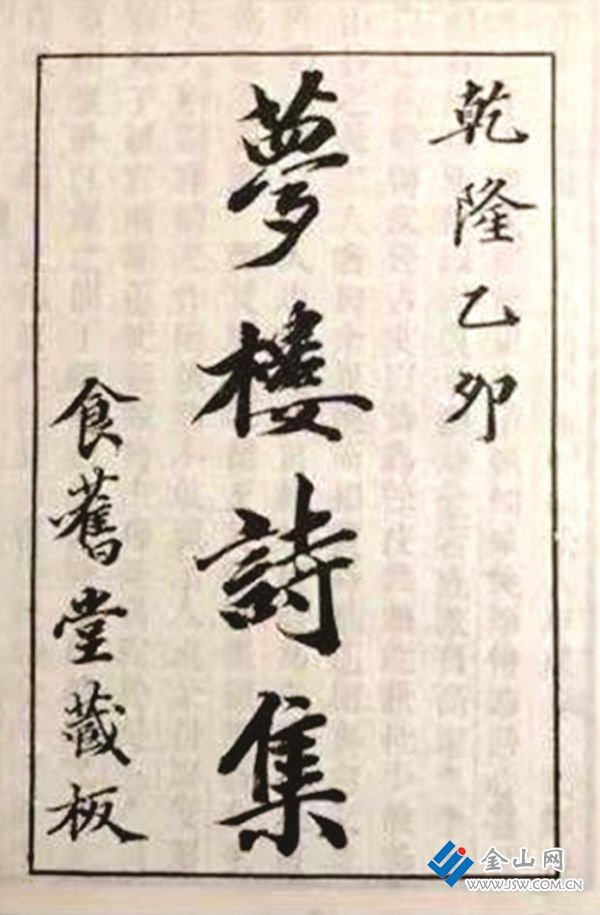 乾隆乙卯
夢樓詩集
食舊堂藏板
金山网
WWW.JSW.COM.CN